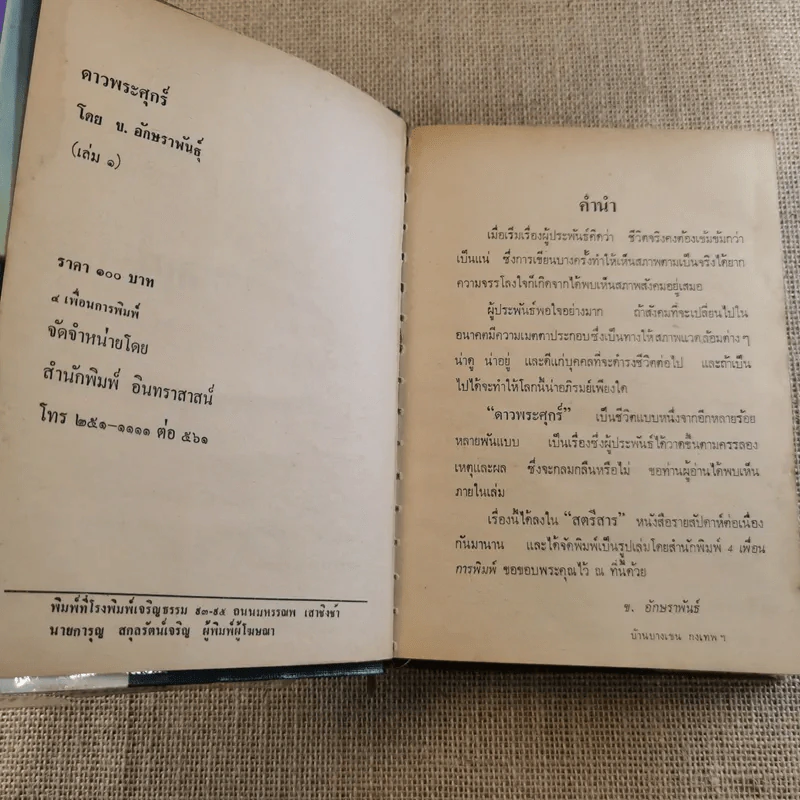 ดาวพระศุกร์
โดย ข. อักษราพันธุ์
(เล่ม ๑)
ราคา ๑๐๐ บาท
๔ เพื่อนการพิมพ์
จัดจำหน่ายโดย
สำนักพิมพ์ อินทราสาสน์
โทร ๒๕๑-๑๑๑๑ ต่อ ๕๖๑
พิมพ์ที่โรงพิมพ์เจริญธรรม ๙๓-๙๕ ถนนมหรรณพ เสาชิงช้า
นายการุญ สกุลรัตน์เจริญ ผู้พิมพ์ผู้โฆษณา
คำนำ
เมื่อเริ่มเรื่องผู้ประพันธ์คิดว่า ชีวิตจริงคงต้องเข้มข้นกว่า
เป็นแน่ ซึ่งการเขียนบางครั้งทำให้เห็นสภาพตามเป็นจริงได้ยาก
ความจรรโลงใจก็เกิดจากได้พบเห็นสภาพสังคมอยู่เสมอ
ผู้ประพันธ์พอใจอย่างมาก ถ้าสังคมที่จะเปลี่ยนไปใน
อนาคตมีความเมตตาประกอบซึ่งเป็นทางให้สภาพแวดล้อมต่างๆ
น่าดู น่าอยู่ และดีแก่บุคคลที่จะดำรงชีวิตต่อไป และถ้าเป็น
ไปได้จะทำให้โลกนี้น่าอภิรมย์เพียงใด
“ดาวพระศุกร์” เป็นชีวิตแบบหนึ่งจากอีกหลายร้อย
หลายพันแบบ เป็นเรื่องซึ่งผู้ประพันธ์ได้วาดขึ้นตามครรลอง
เหตุและผล ซึ่งจะกลมกลืนหรือไม่ ขอท่านผู้อ่านได้พบเห็น
ภายในเล่ม
เรื่องนี้ได้ลงใน “สตรีสาร” หนังสือรายสัปดาห์ต่อเนื่อง
กันมานาน และได้จัดพิมพ์เป็นรูปเล่มโดยสำนักพิมพ์ 4 เพื่อน
การพิมพ์ ขอขอบพระคุณไว้ ณ ที่นี้ด้วย
ข. อักษราพันธ์
บ้านบางเขน กทเทพฯ